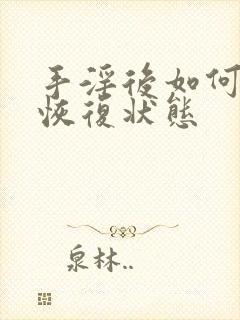 手淫後如何
恢復狀態
泉林..